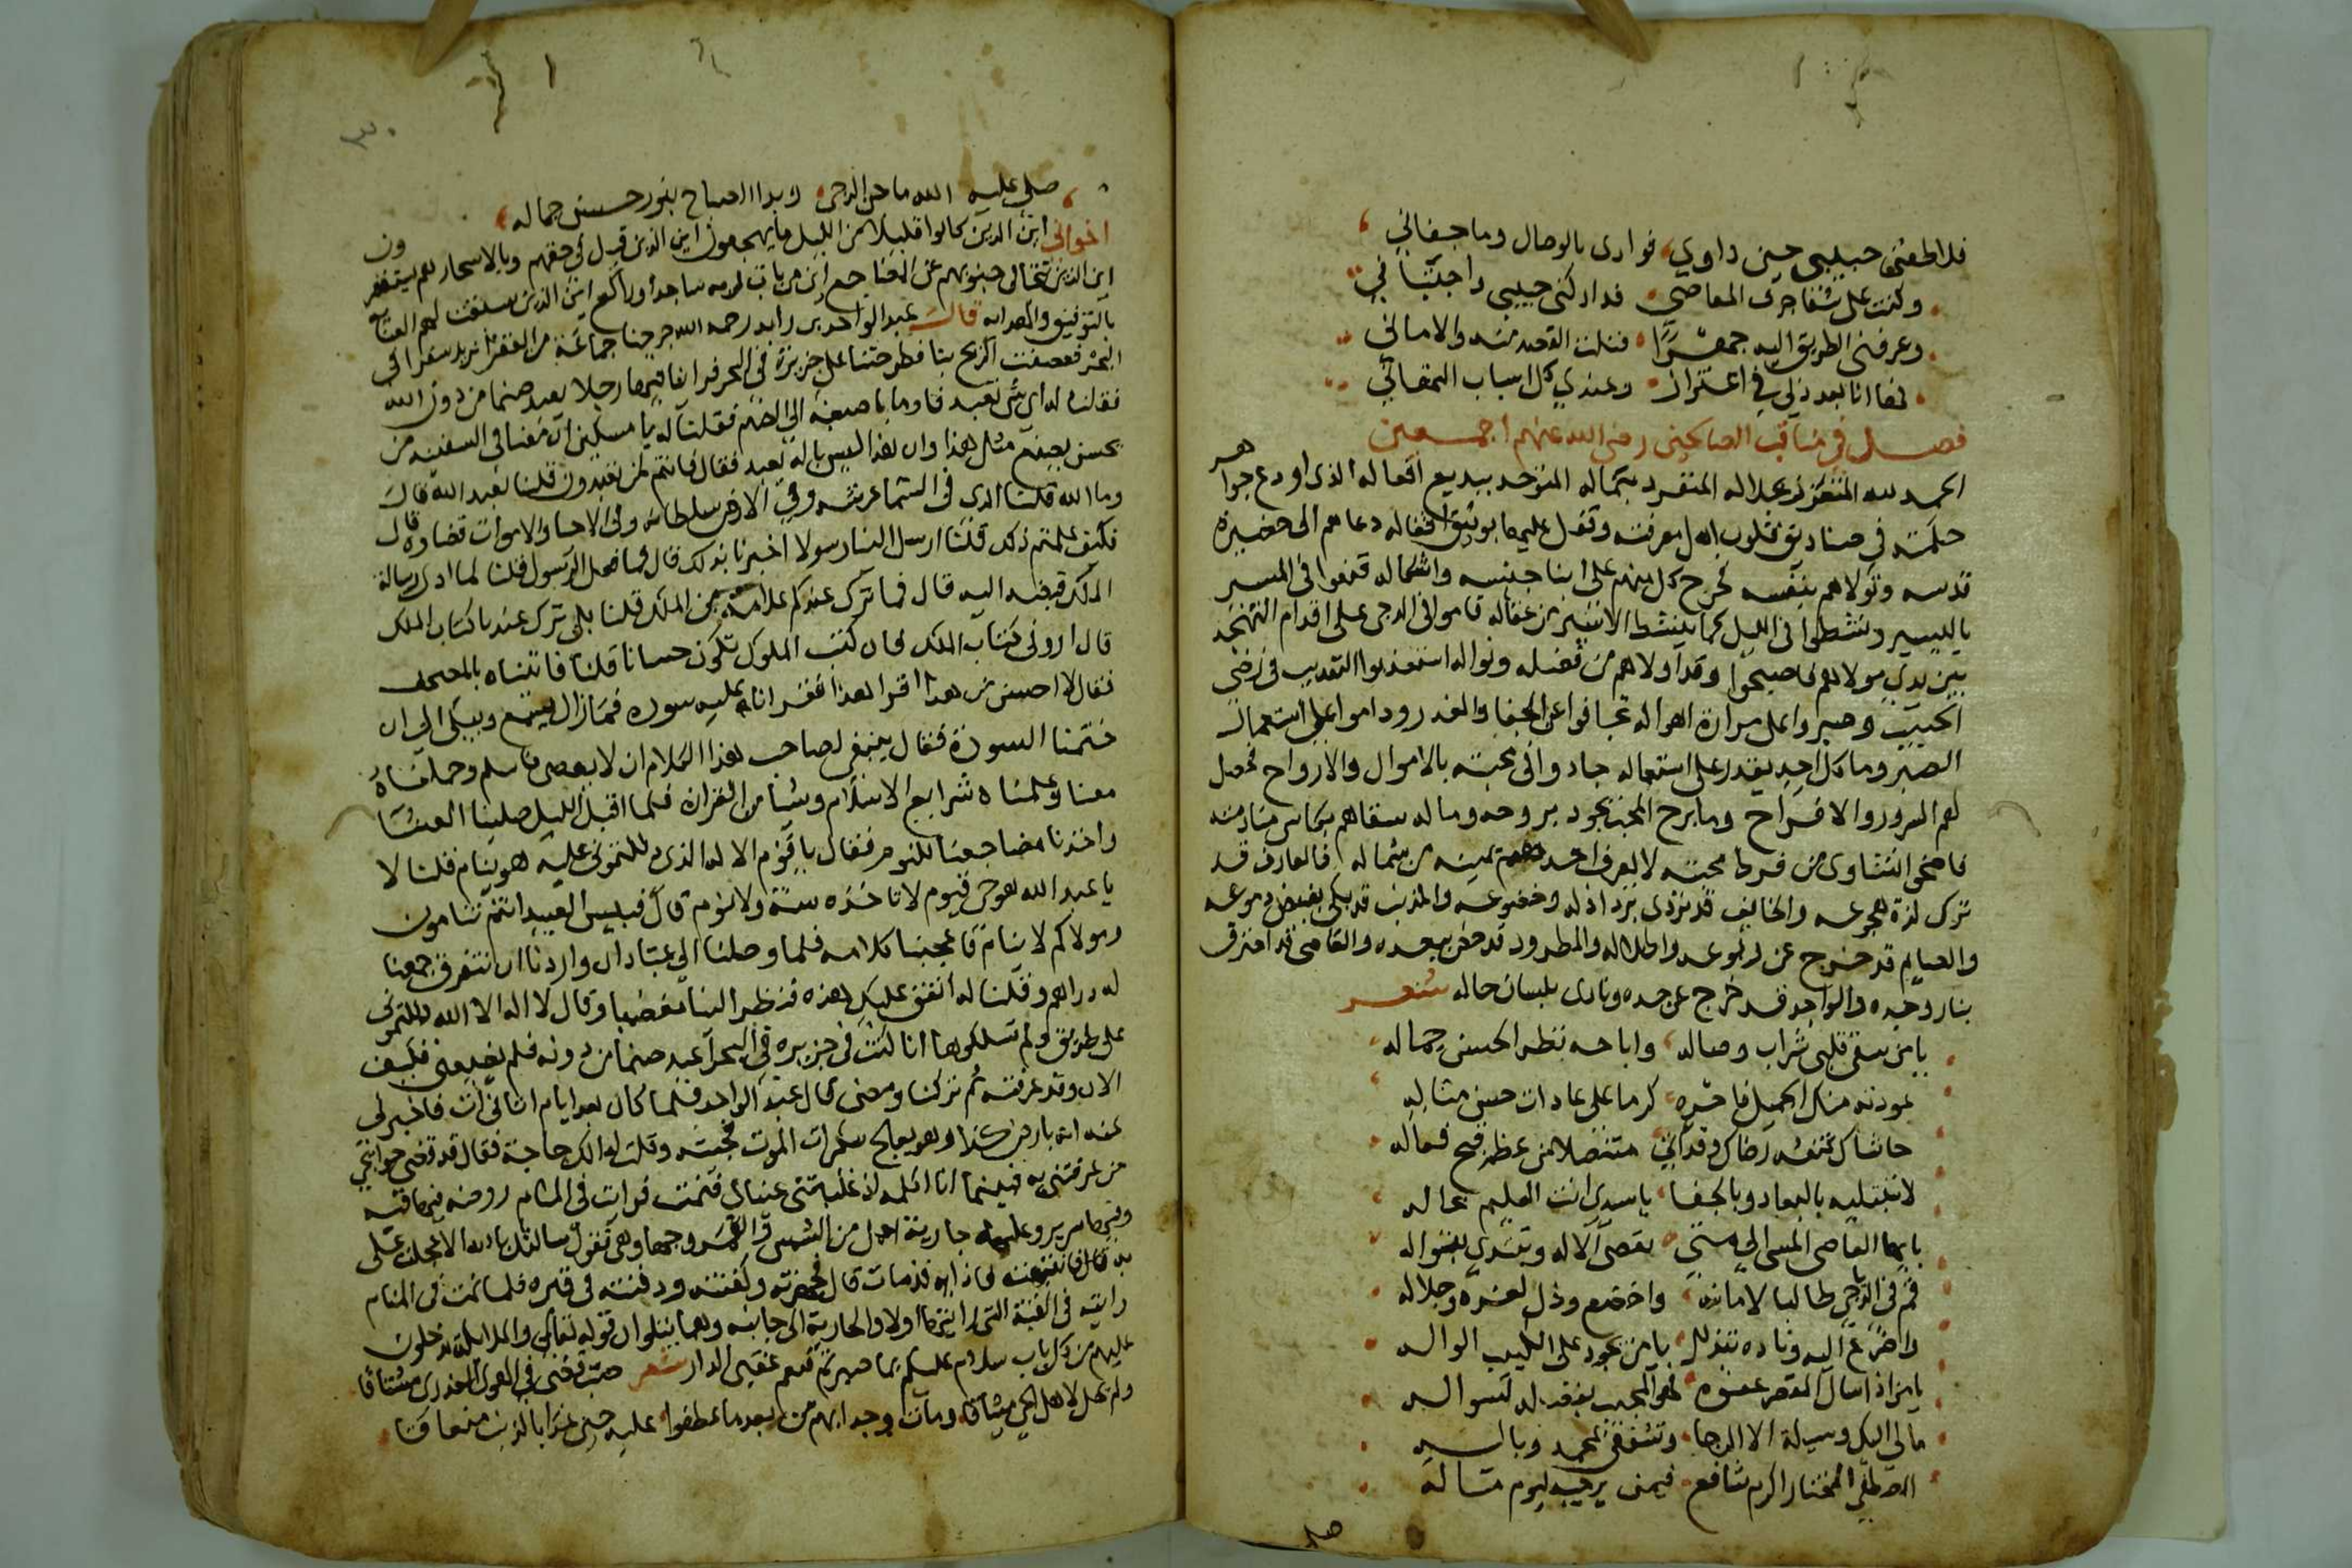 فلاطفني حبيبي حين داوي فوادي بالوصال وما جفاني
وكنت على شفا جرف المعاصي فداركني حبيبي واجتباني
وعرفني الطريق اليه جهرا فنلت القصد منه والاماني
فها انا بعد ذلي في اعتزاز وعندي كل اسباب التهاني
فصل في مناقب الصالحين رضي الله عنهم اجمعين
الحمد لله المتعزز بجلاله المتفرد بكماله المتوحد ببديع افعاله الذي اودع جواهر
حكمته في صناديق قلوب اهل معرفته وقفل عليها بوثيق اقفاله دعاهم الى حضيرة
قدسه وتولاهم بنفسه فخرج كل منهم على ابنا جنسه واشكاله قنعوا في المسير
باليسير ونشطوا في الليل كما ينشط الاسير من عقاله قاموا في الدجى على اقدام التهجد
بين يدي مولاهم فاصبحوا وقد اولاهم من فضله ونواله استعذبوا التعذيب في رضى
الحبيب وصبروا على مرارة اهواله تجافوا عن الجفا والغدر وداموا على استعمال
الصبر وما كل احد يقدر على استعماله جادوا في محبته بالاموال والارواح فحصل
لهم السرور والافراح وما برح المحب يجود بروحه وماله سقاهم بكاس منادمته
فاضحى النشاوى من فرط محبته لا يعرف احدهم يمينه من شماله فالعارف قد
ترك لذة هجوعه والخايف قد تردى برداذله وخضوعه والمذنب قد بكى بفيض دموعه
والهايم قد خرج عن ربوعه واطلاله والمطرود قد مض ببعده والعاصي قد احترق
بنار وجده والواجد قد خرج عن حده ونادى بلسان حاله شعر
يا من سقى قلبي شراب وصاله واباحه نظر الحسن جماله
عودته منك الجميل فاجره كرما على عادات حسن مثاله
حاشاك تمنعه رضاك وقد اتى متنصلا من عظم قبح فعاله
لا تبتليه بالبعاد وبالجفا يا سيدي انت العليم بحاله
يا ايها العاصي المسي الى متى تعصى الاله وتبتدي بنواله
قم في الدياجي طالبا لامانه واخضع وذل لعزه وجلاله
واضرع اليه وناده بتذلل يا من يجود على الكئيب الواله
يا من اذا سال المقصر عفوه فهو المجيب بفضله لسواله
مالي اليك وسيلة الا الرجا وتشفعي بمحمد وباله
المصطفى المختار اكرم شافع فيمن يرجيه ليوم مساله
صلى
٣٠
صلى عليه الله ما جن الدجى وبدا الصباح بنور حسن جماله
اخواني اين الذين كانوا قليلا من الليل ما يهجعون اين الذين قيل في حقهم وبالاسحار هم يستغفرون
اين الذين تتجافى جنوبهم عن المضاجع اين من بات لربه ساجدا وراكع اين الذين سبقت لهم العناية
بالتوفيق والهدايه قال عبد الواحد بن زايد رحمه الله خرجنا جماعة من الفقرا نريد سفرا في
البحر فعصفت الريح بنا فطرحتنا على جزيرة في البحر فراينا فيها رجلا يعبد صنما من دون الله
فقلنا له اي شي تعبد فاوما باصبعه الى الصنم فقلنا له يا مسكين ان معنا في السفينه من
يحسن يصنع مثل هذا وان هذا ليس باله يعبد فقال فانتم لمن تعبدون قلنا نعبد الله قال
وما الله قلنا الذي في السما عرشه وفي الارض سلطانه وفي الاحيا والاموات قضاوه قال
فكيف علمتم ذلك قلنا ارسل الينا رسولا اخبرنا بذلك قال فما فعل الرسول قلنا لما ادى رسالة
الملك قبضه اليه قال فما ترك عندكم علامة من الملك قلنا بلى ترك عندنا كتاب الملك
قال اروني كتاب الملك فان كتب الملوك تكون حسانا قلنا فاتيناه بالمصحف
فقال لا احسن من هذا اقرا هذا فقرانا عليه سورة فمازال يسمع ويبكي الى ان
ختمنا السورة فقال ينبغي لصاحب هذا الكلام ان لا يعصى فاسلم وحملناه
معنا وعلمناه شرايع الاسلام وشيا من القران فلما اقبل الليل صلينا العشا
واخذنا مضاجعنا للنوم فقال يا قوم الاله الذي دللتموني عليه هو ينام قلنا لا
يا عبد الله هو حي قيوم لا تاخذه سنة ولا نوم قال فبيس العبيد انتم تنامون
ومولاكم لا ينام فاعجبنا كلامه فلما وصلنا الى عبادان واردنا ان نتفرق جمعنا
له دراهم وقلنا له انفق عليك هذه فنظر الينا مغضبا وقال لا اله الا الله دللتموني
على طريق ولم تسلكوها انا كنت في جزيره في البحر اعبد صنما من دونه فلم يضيعني فكيف
الان وقد عرفته ثم تركنا ومضى قال عبد الواحد فلما كان بعد ايام اتاني ات فاخبرني
عنه انه بارض كذا وهو يعالج سكرات الموت فجيته وقلت له الك حاجة فقال قد قضى حوايجي
من عرفتني به فبينما انا اكلمه اذ غلبتني عيناي فنمت فرايت في المنام روضه فيها قبه
وفيها سرير وعليه جارية اجمل من الشمس والقمر وجهها وهي تقول سالتك بالله الا عجلت علي
به قال فانتبهت فاذا به قد مات قال فجهزته وكفنته ودفنته في قبره فلما نمت في المنام
رايته في القبة التي رايتها اولا والجارية الى جانبه وهما يتلوان قوله تعالى والملايكة يدخلون
عليهم من كل باب سلام عليكم بما صبرتم فنعم عقبى الدار شعر صب قضى في الهوى العذري مشتاقا
ولم يحل لاهل الحي ميثاقا ومات وجدا بهم من بعد ما عطفوا عليه حتى غدا بالذنب متعاقا